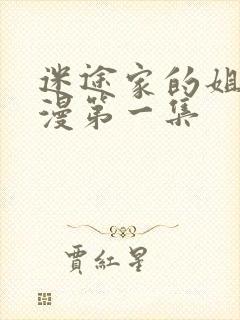 迷途家的姐
漫第一集
賈紅星